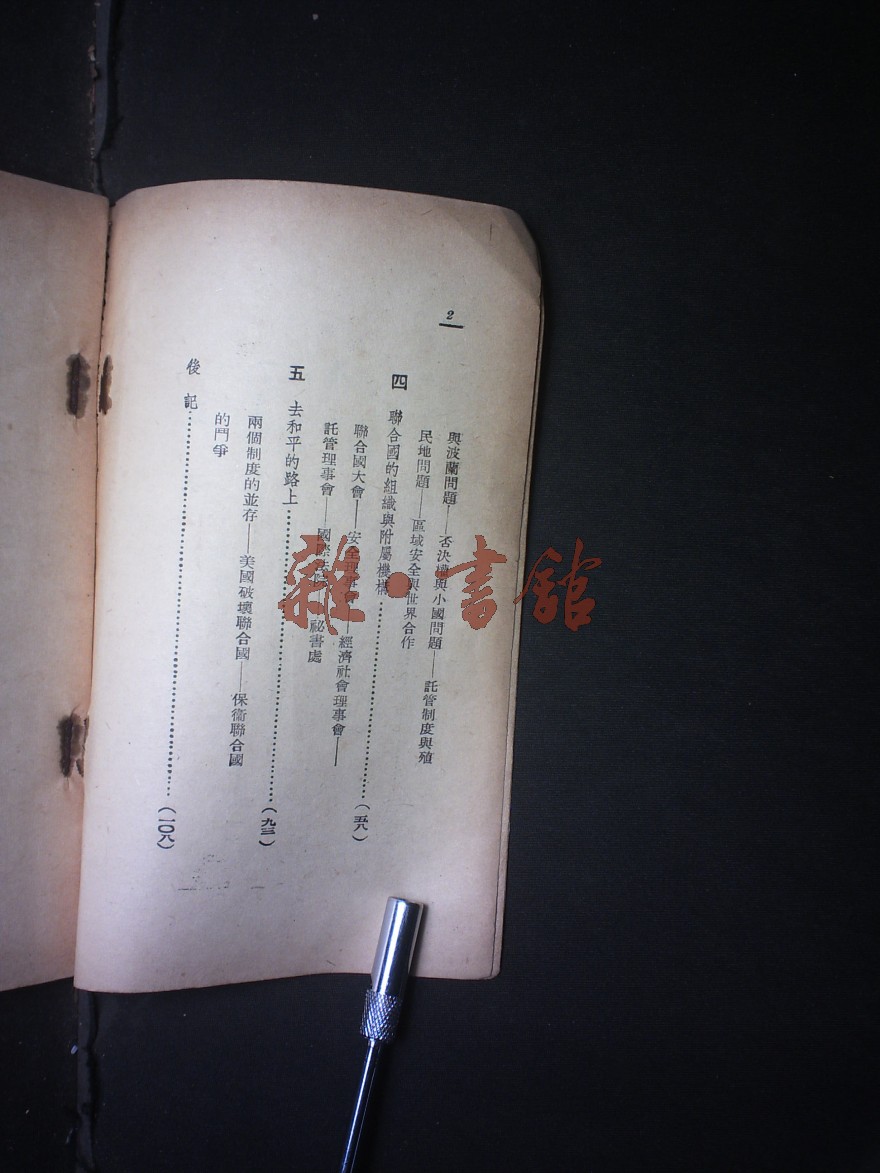 2
與波蘭問題——否決權與小國問題——託管制度與殖
民地問題——區域安全與世界合作
四 聯合國的組織與附屬機構…………(五八)
聯合國大會——安全理事會——經濟社會理事會——
託管理事會——國際法院——祕書處
五 去和平的路上…………(九三)
兩個制度的並存——美國破壞聯合國——保衞聯合國
的鬥爭
後記…………(一〇八)
雜·書館